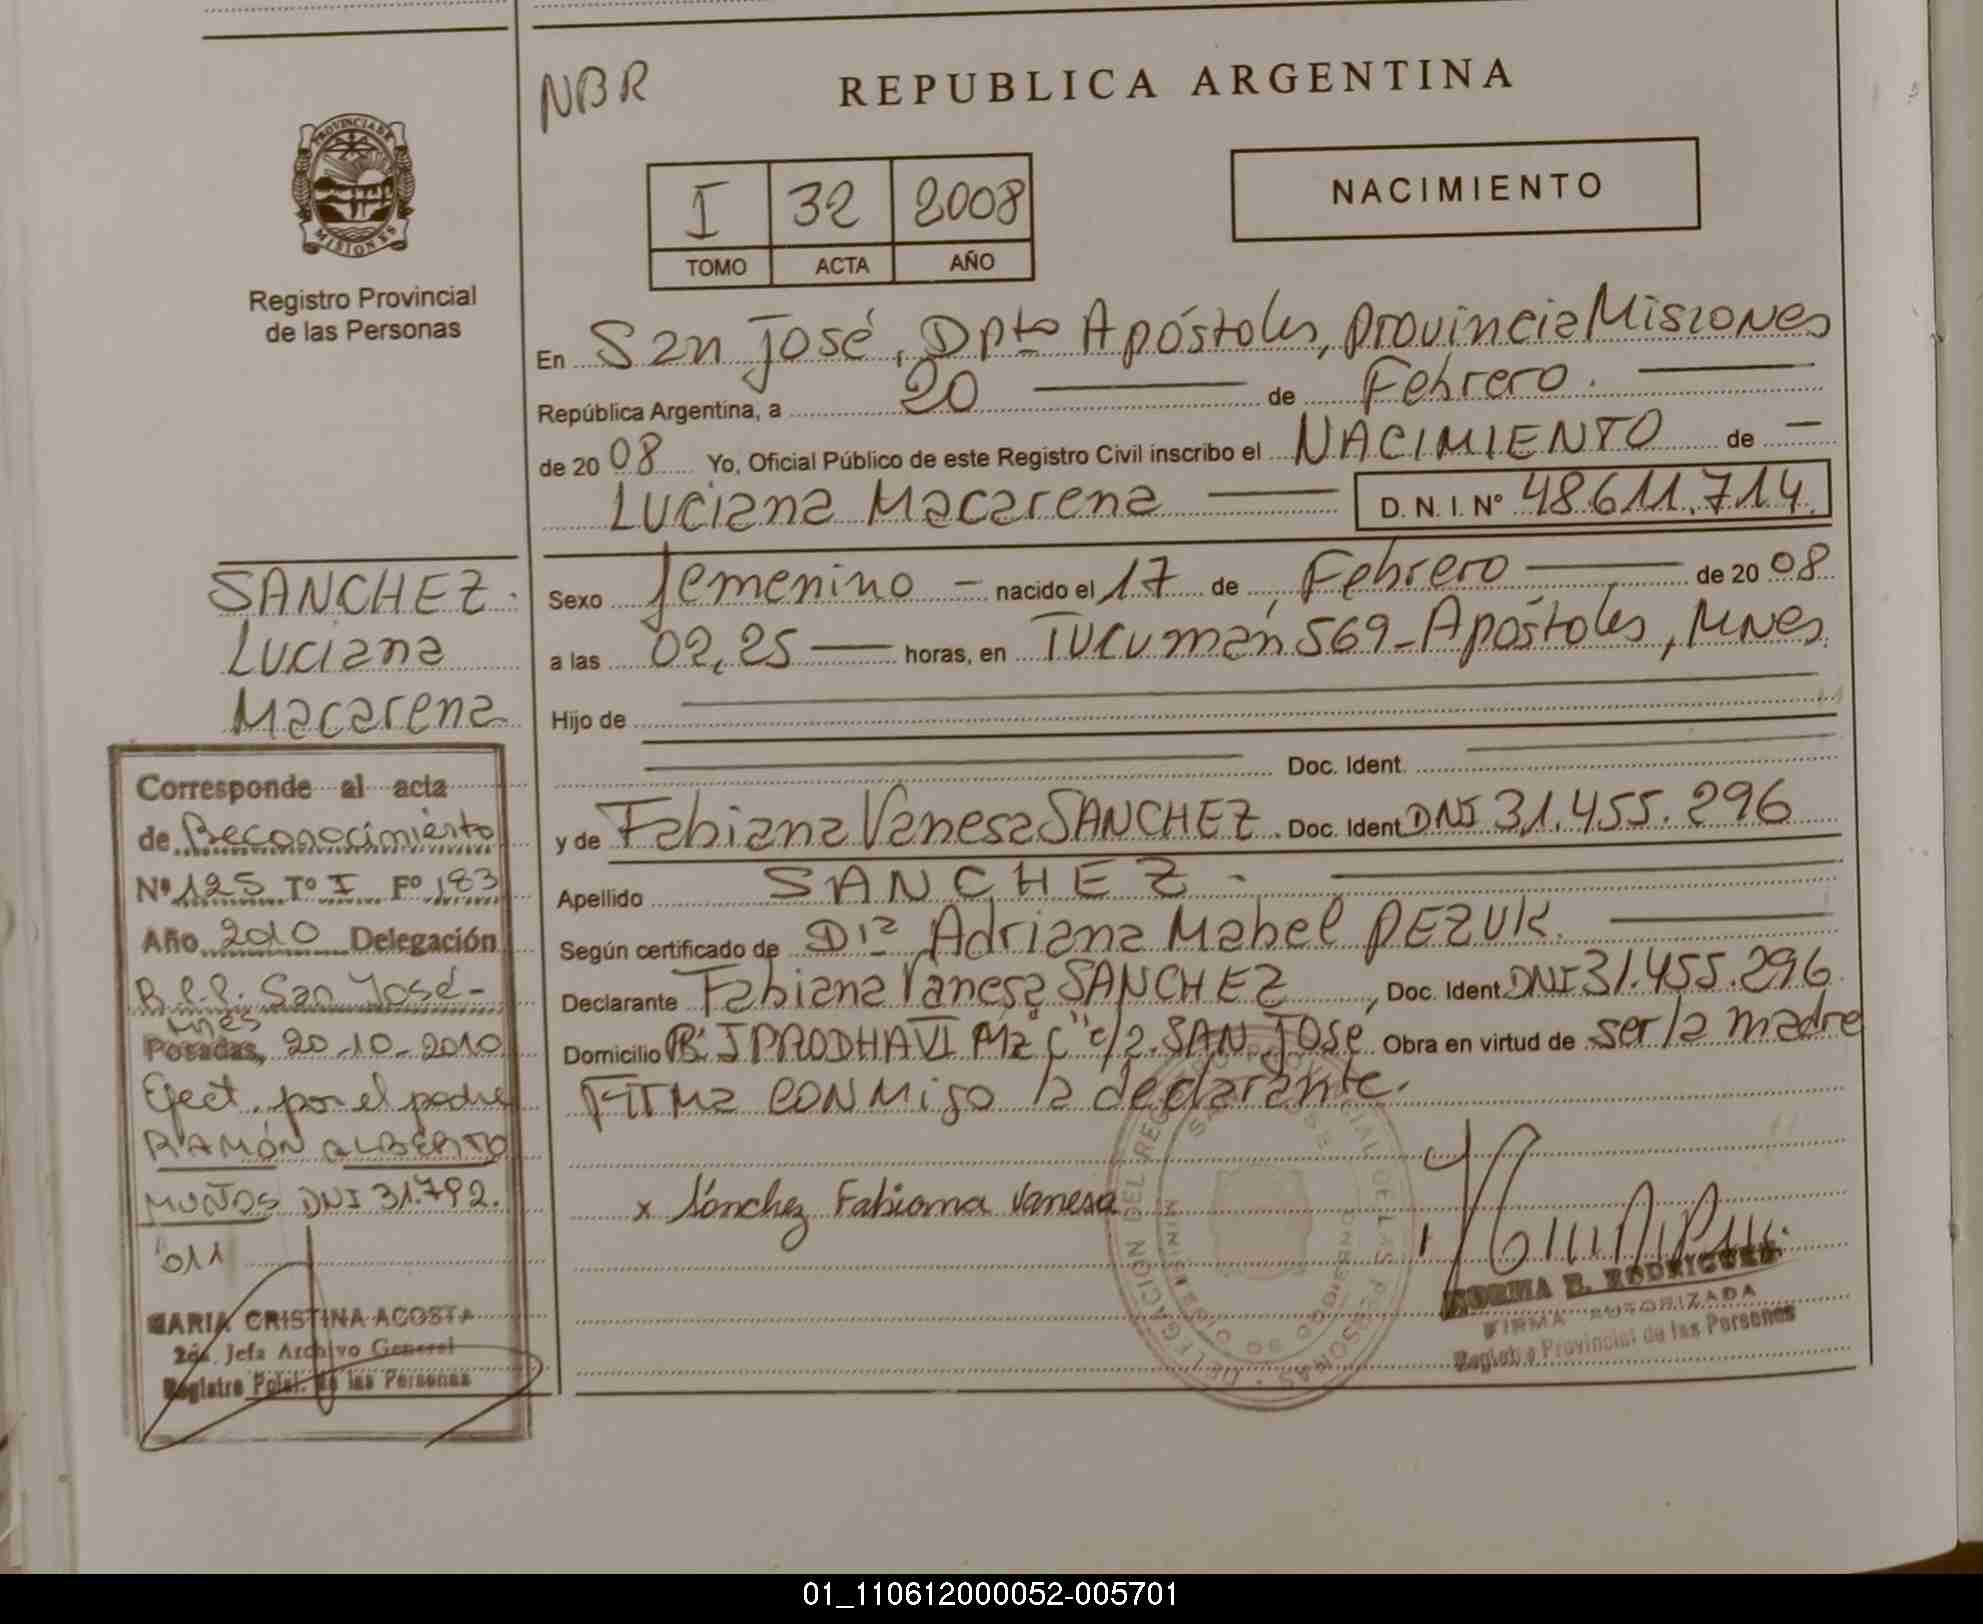 NBR
REPUBLICA ARGENTINA
PROVINCIA DE
MISIONES
Registro Provincial
de las Personas
I 32 2008
TOMO ACTA AÑO
NACIMIENTO
En San José, Dpto Apóstoles, Provincia Misiones
República Argentina, a 20 de Febrero.
de 2008 Yo, Oficial Público de este Registro Civil inscribo el NACIMIENTO de
Luciana Macarena D.N.I. Nº 48.611.714
Sexo femenino - nacido el 17 de Febrero de 2008
a las 02,25 horas, en Tucumán 569 - Apóstoles, Mnes
Hijo de
Doc. Ident.
y de Fabiana Vanesa SANCHEZ. Doc. Ident DNI 31.455.296
Apellido SANCHEZ.
Según certificado de Dra Adriana Mabel PEZUK.
Declarante Fabiana Vanesa SANCHEZ, Doc. Ident DNI 31.455.296
Domicilio Bº IPRODHA VI Mz "C" c/2. SAN JOSE Obra en virtud de ser la madre
Firma conmigo la declarante.
x Sánchez Fabiana Vanesa
NORMA B. RODRIGUEZ
FIRMA AUTORIZADA
Registro Provincial de las Personas
SANCHEZ.
Luciana
Macarena
Corresponde al acta
de Reconocimiento
Nº 125 Tº I Fº 183
Año 2010 Delegación
R.P.P. San José-
Mnes
Posadas, 20-10-2010
Efect. por el padre
RAMÓN ALBERTO
MUÑOS DNI 31.792.
011
MARIA CRISTINA ACOSTA
2da. Jefa Archivo General
Registro Pcial. de las Personas
01_110612000052-005701